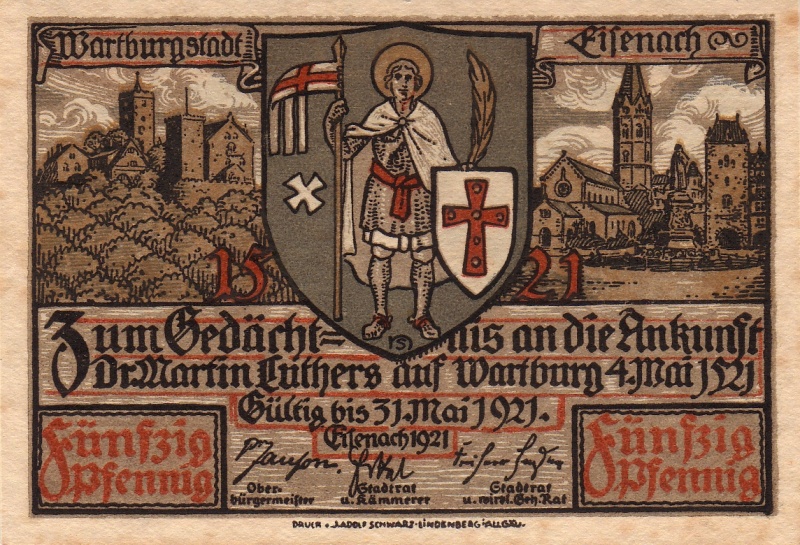 Wartburgstadt
Eisenach
15 21
Zum Gedächt= nis an die Ankunft
Dr. Martin Luthers auf Wartburg 4. Mai 1521
Gültig bis 31. Mai 1921.
Eisenach 1921
Fünfzig
Pfennig
Fünfzig
Pfennig
Ober-
bürgermeister
Stadtrat
u. Kämmerer
Stadtrat
u. wirkl. Geh. Rat
DRUCK v. ADOLF SCHWARZ-LINDENBERG i/ALLGÄU